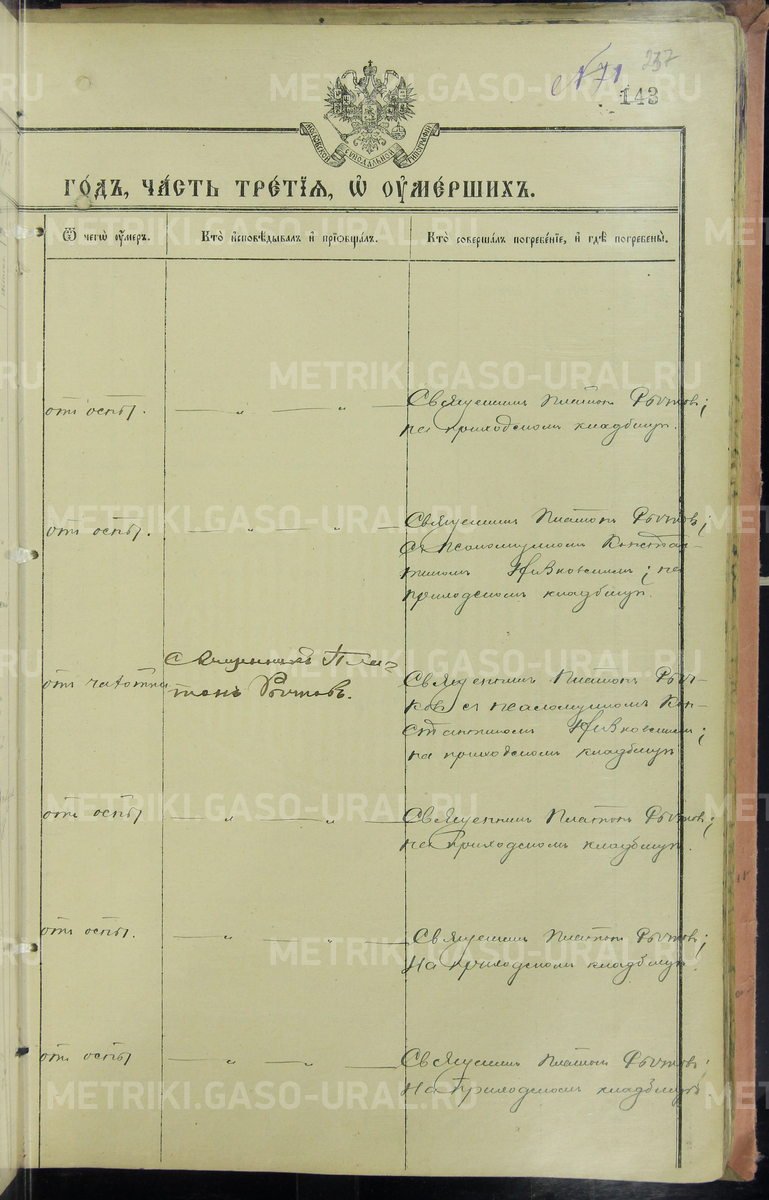 № 71 237
143
МОСКОВСКОЙ СѴНОДАЛЬНОЙ ТИПОГРАФІИ
ГО́ДЪ, ЧА́СТЬ ТРЕ́ТІѦ, Ѽ ОУ҆МЕ́РШИХЪ.
Ѿ чегѡ̀ оу҆́меръ. Кто̀ и҆сповѣ́дывалъ и҆ прїѡбща́лъ. Кто̀ соверша́лъ погребе́нїе, и҆ гдѣ̀ погребены̀.
отъ оспы. — „ — „ — Священникъ Платонъ Рычковъ;
на приходскомъ кладбищѣ.
отъ оспы. — „ — „ — Священникъ Платонъ Рычковъ,
съ псаломщикомъ Констан-
тиномъ ; на
приходскомъ кладбищѣ.
отъ чахотки Священникъ Пла-
тонъ Рычковъ.
Священникъ Платонъ Рыч-
ковъ съ псаломщикомъ Кон-
стантиномъ ;
на приходскомъ кладбищѣ
отъ оспы — „ — „ — Священникъ Платонъ Рычковъ;
на приходскомъ кладбищѣ.
отъ оспы. — „ — „ — Священникъ Платонъ Рычковъ;
На приходскомъ кладбищѣ.
отъ оспы — „ — „ — Священникъ Платонъ Рычковъ;
На приходскомъ кладбищѣ.
METRIKI.GASO-URAL.RU